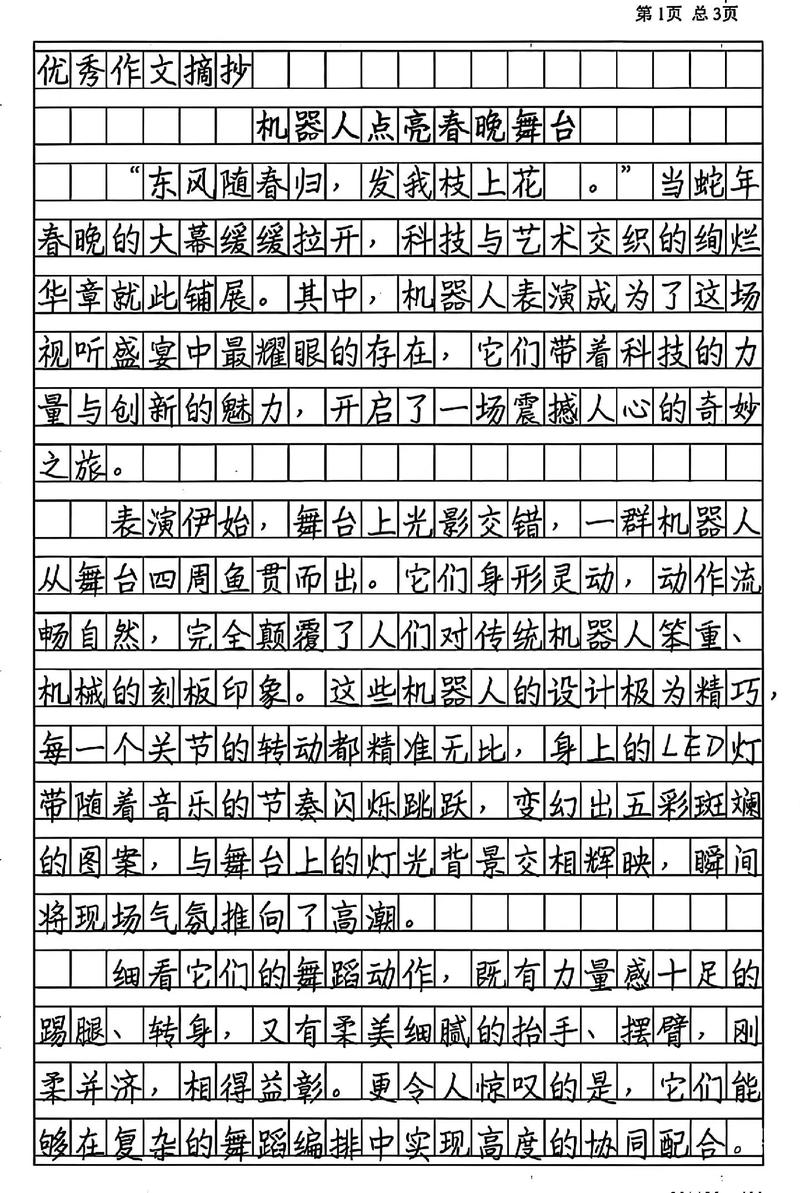 第1页 总3页
优秀作文摘抄
机器人点亮春晚舞台
“东风随春归，发我枝上花。”当蛇年
春晚的大幕缓缓拉开，科技与艺术交织的绚烂
华章就此铺展。其中，机器人表演成为了这场
视听盛宴中最耀眼的存在，它们带着科技的力
量与创新的魅力，开启了一场震撼人心的奇妙
之旅。
表演伊始，舞台上光影交错，一群机器人
从舞台四周鱼贯而出。它们身形灵动，动作流
畅自然，完全颠覆了人们对传统机器人笨重、
机械的刻板印象。这些机器人的设计极为精巧，
每一个关节的转动都精准无比，身上的LED灯
带随着音乐的节奏闪烁跳跃，变幻出五彩斑斓
的图案，与舞台上的灯光背景交相辉映，瞬间
将现场气氛推向了高潮。
细看它们的舞蹈动作，既有力量感十足的
踢腿、转身，又有柔美细腻的抬手、摆臂，刚
柔并济，相得益彰。更令人惊叹的是，它们能
够在复杂的舞蹈编排中实现高度的协同配合。